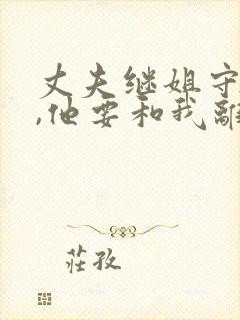 丈夫继姐守
,他要和我離
莊孜